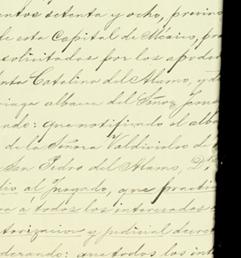 entos setenta y ocho, provin
de esta Capital de México, pa
solicitadas por los apodar
nta Catalina del Alamo, y d
riaga albacea del Señor Jon
ndo: que notifiando el alb
de la Señora Valdivielso de
San Pedro del Alamo, D.
dio al Juzgado, que practi
a a todos los interesados
torizacion y judicial decret
derando: que todos los int